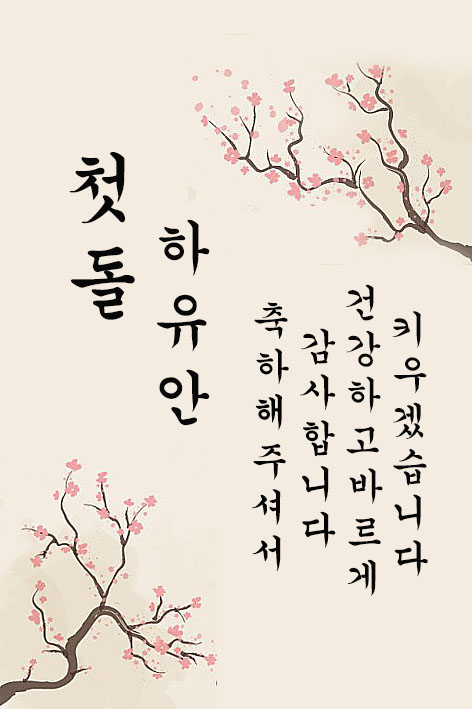 첫돌
하유안
축하해주셔서
감사합니다
건강하고바르게
키우겠습니다